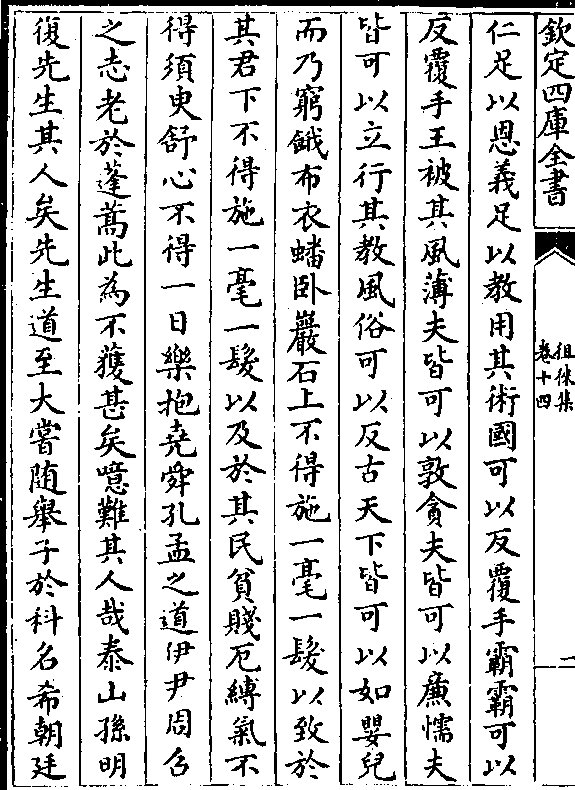 欽定四庫全書
徂徠集
卷十四
二
仁足以恩義足以教用其術國可以反覆手霸霸可以
反覆手王被其風薄夫皆可以敦貪夫皆可以廉懦夫
皆可以立行其教風俗可以反古天下皆可以如嬰兒
而乃窮餓布衣蟠卧巖石上不得施一毫一髮以致於
其君下不得施一毫一髮以及於其民貧賤厄縛氣不
得須臾舒心不得一日樂抱堯舜孔孟之道伊尹周公
之志老於蓬蒿此為不獲甚矣噫難其人哉泰山孫明
復先生其人矣先生道至大嘗随舉子於科名希朝廷